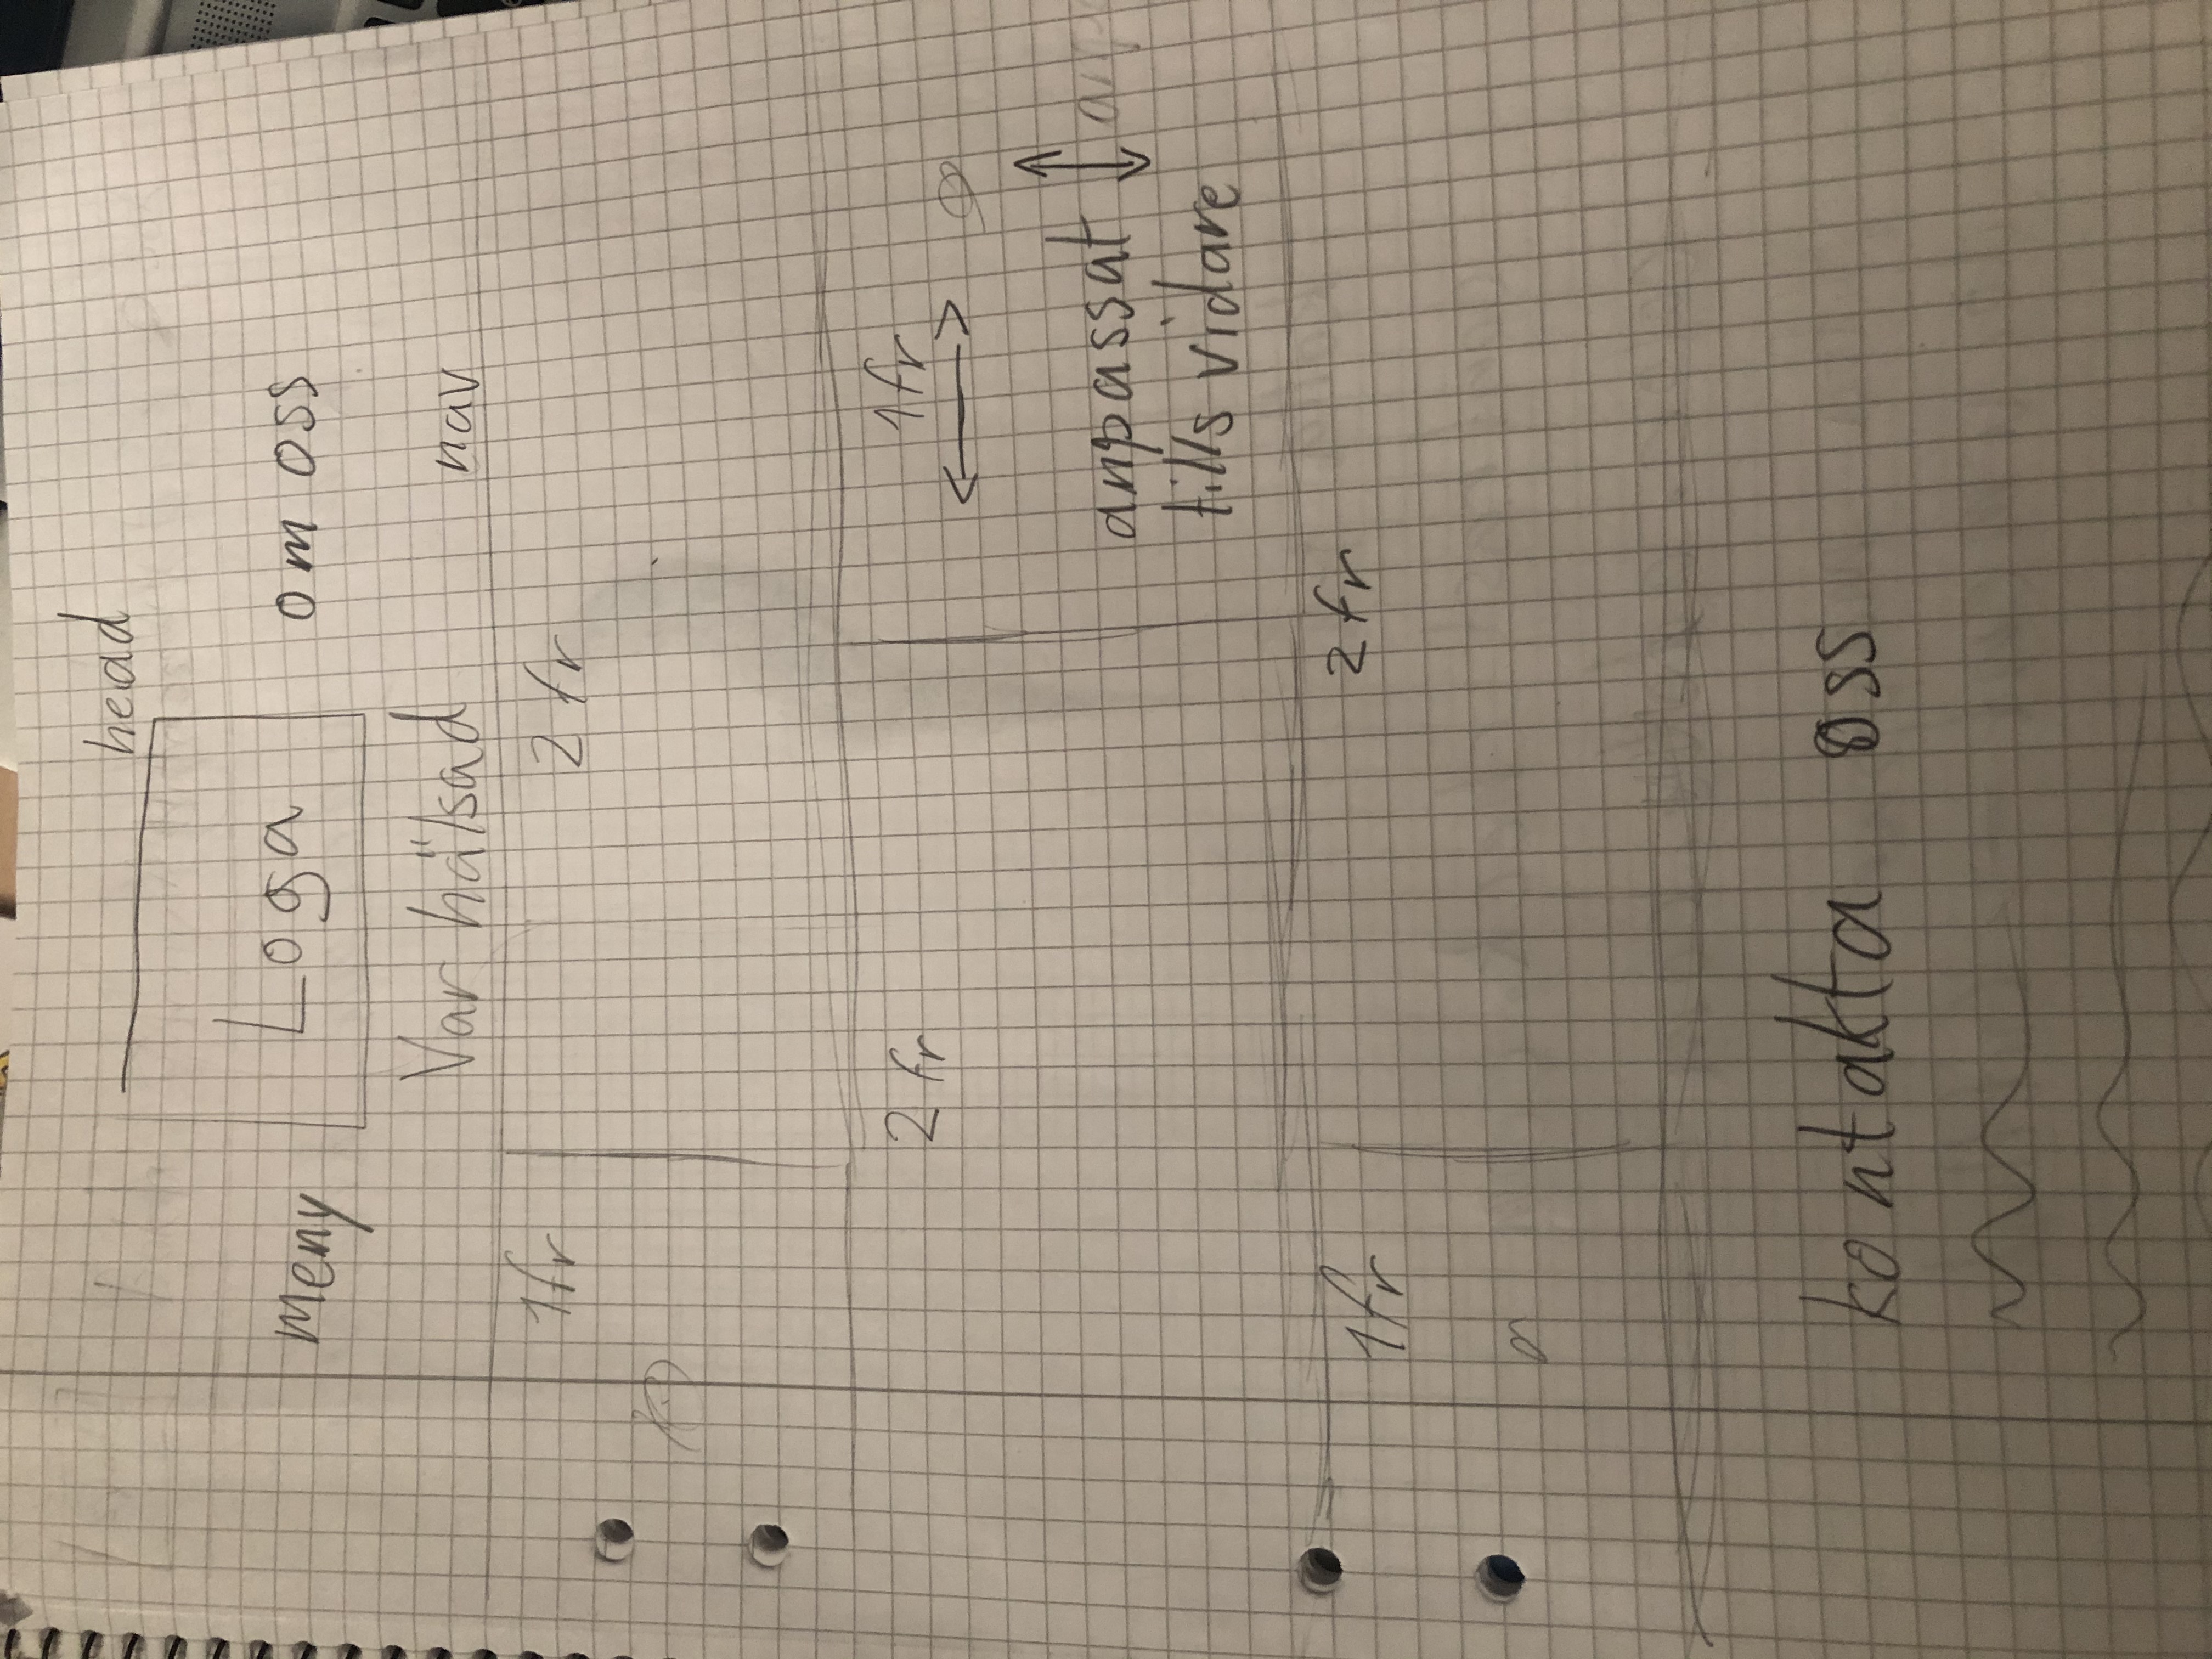 head
meny Loga om oss
Var hälsad nav
1fr 2 fr
2 fr 1fr
anpassat
tills vidare
1fr 2fr
kontakta oss